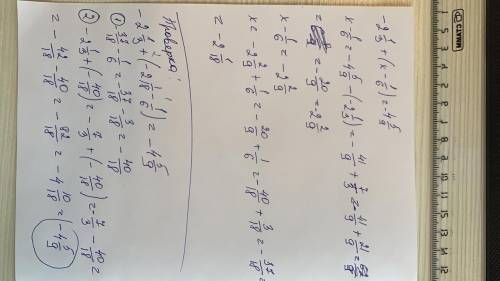 -2 1/3 + (x - 1/6) = -4 5/9
x - 1/6 = -4 5/9 - (-2 1/3) = -41/9 + 7/3 = -41/9 + 21/9 =
= -20/9 = -2 2/9
x - 1/6 = -2 2/9
x = -2 2/9 + 1/6 = -20/9 + 1/6 = -40/18 + 3/18 = -37/18 =
= -2 1/18
Проверка:
-2 1/3 + (-2 1/18 - 1/6) = -4 5/9
① -37/18 - 1/6 = -37/18 - 3/18 = -40/18
② -2 1/3 + (-40/18) = -7/3 + (-40/18) = -7/3 - 40/18 =
= -42/18 - 40/18 = -82/18 = -4 10/18 = -4 5/9
СТАММ
0 1 2 3 4 5 6 7 8 9 10 11 12